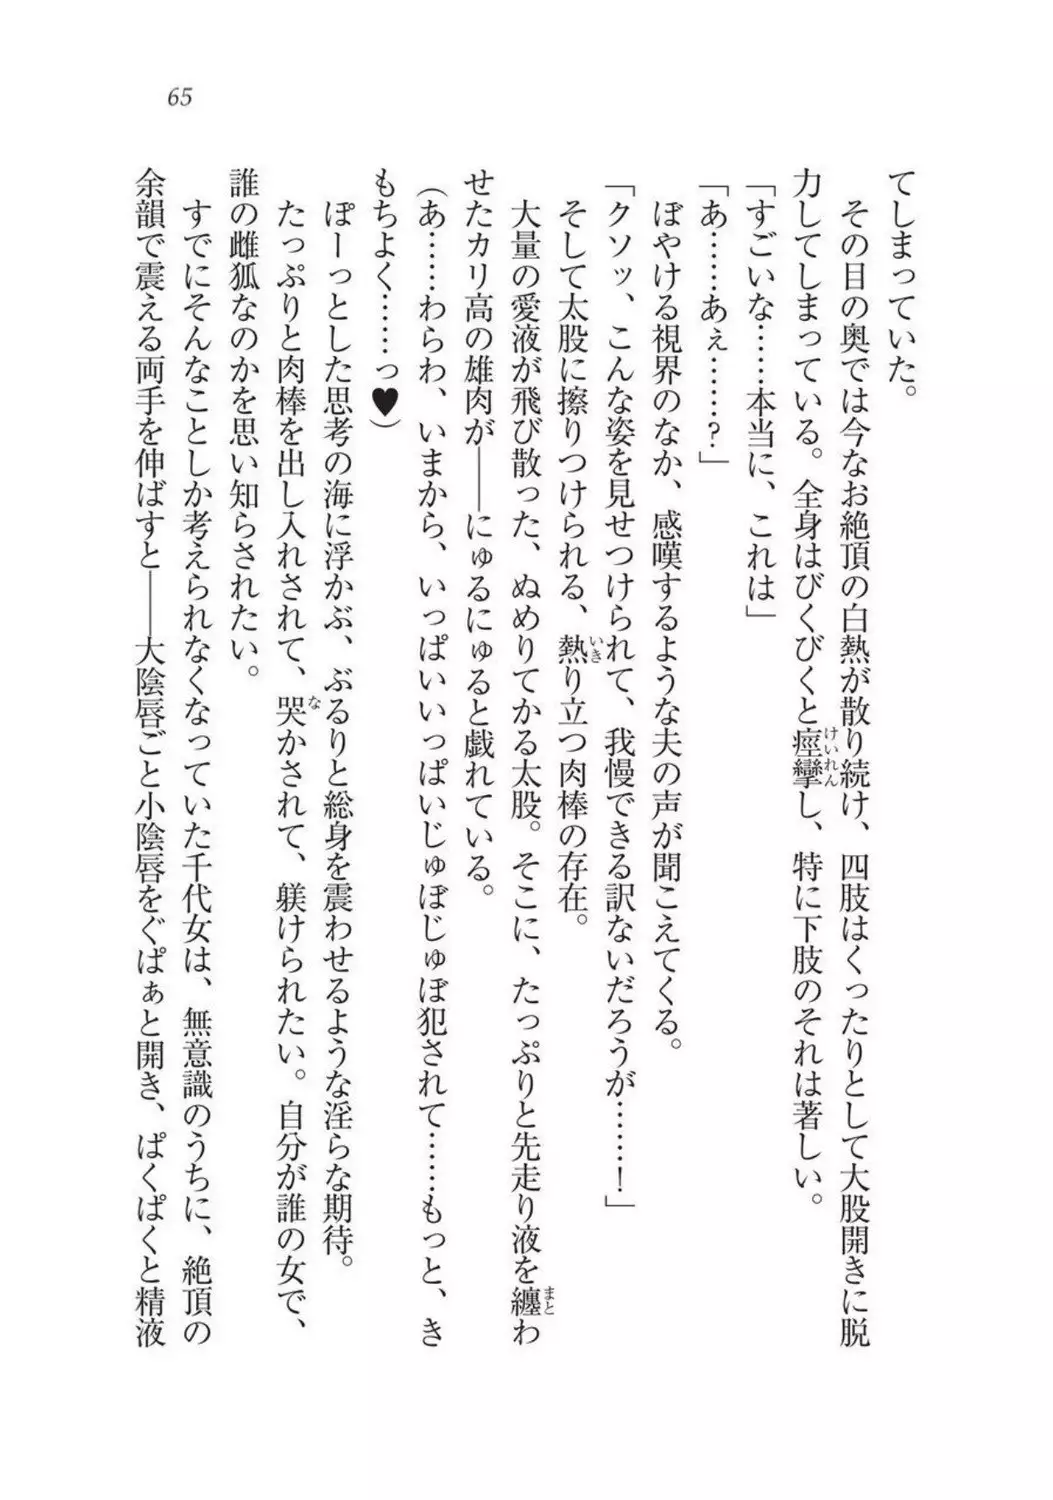 65
てしまっていた。
その目の奥では今なお絶頂の白熱が散り続け、四肢はくったりとして大股開きに脱
力してしまっている。全身はびくびくと痙攣し、特に下肢のそれは著しい。
けいれん
「すごいな……本当に、これは」
「あ……あぇ……？」
ぼやける視界のなか、感嘆するような夫の声が聞こえてくる。
「クソッ、こんな姿を見せつけられて、我慢できる訳ないだろうが……！」
そして太股に擦りつけられる、熱り立つ肉棒の存在。
いき
大量の愛液が飛び散った、ぬめりてかる太股。そこに、たっぷりと先走り液を纏わ
まと
せたカリ高の雄肉が――にゅるにゅると戯れている。
（あ……わらわ、いまから、いっぱいいっぱいじゅぼじゅぼ犯されて……もっと、き
もちよく……っ♥）
ぽーっとした思考の海に浮かぶ、ぶるりと総身を震わせるような淫らな期待。
たっぷりと肉棒を出し入れされて、哭かされて、躾けられたい。自分が誰の女で、
な
誰の雌狐なのかを思い知らされたい。
すでにそんなことしか考えられなくなっていた千代女は、無意識のうちに、絶頂の
余韻で震える両手を伸ばすと――大陰唇ごと小陰唇をぐぱぁと開き、ぱくぱくと精液